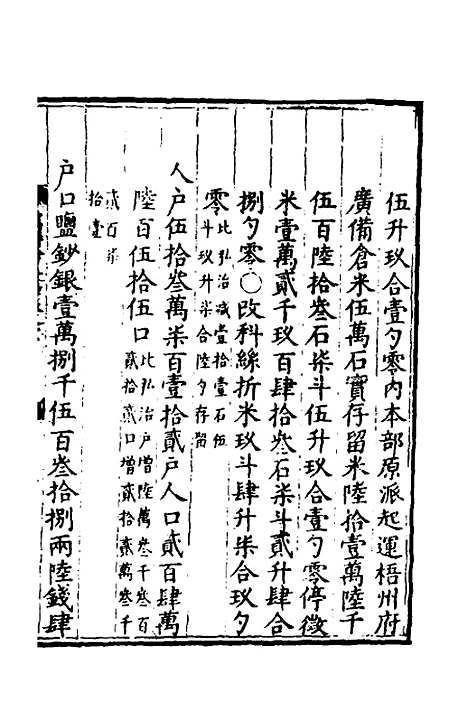 伍升玖合壹勺零內本部原派起運梧州府
廣備倉米伍萬石實存留米陸拾壹萬陸千
伍百陸拾叁石柒斗伍升玖合壹勺零停徵
米壹萬貳千玖百肆拾叁石柒斗貳升肆合
捌勺零○改科絲折米玖斗肆升柒合玖勺
零
比弘治減壹拾壹石伍
斗玖升柒合陸勺存留
人户伍拾叁萬柒百壹拾貳户人口貳百肆萬
陸百伍拾伍口
比弘治户增陸萬叁千叁百
貳拾貳口增貳拾貳萬叁千
貳百柒
拾壹
户口鹽鈔銀壹萬捌千伍百叁拾捌兩陸錢肆